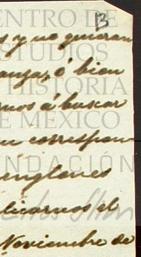 13
CENTRO DE
ESTUDIOS
DE HISTORIA
DE MEXICO
FUNDACIÓN
s y no quieran
anza, ó bien
rnos á buscar
correspon
renglones
licarnos el
Noviembre de